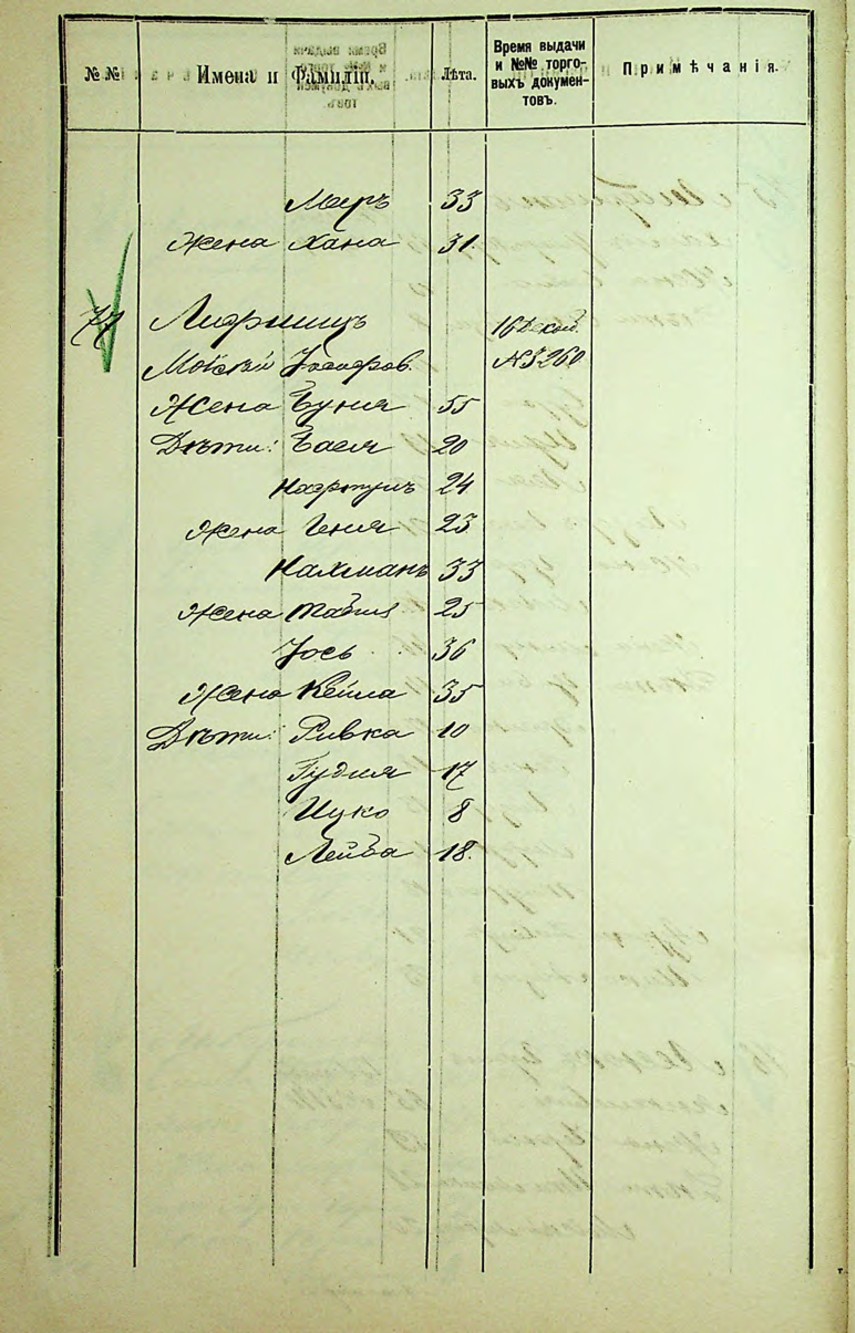 №№ Имена и Фамиліи. Лѣта. Время выдачи и №№ торговыхъ документовъ. Примѣчанія.
Меръ 33
Жена Хана 31.
77 Лифшицъ 16 Декаб.
Мойсей Іосифов. № 3260
Жена Буня 55
Дѣти: Бася 20
Нафтулъ 24
Жена Геня 23
Нахманъ 33
Жена 25
Іось 36
Жена Кейла 35
Дѣти: Ривка 10
Гудля 17
Ицко 8
Лейба 18.